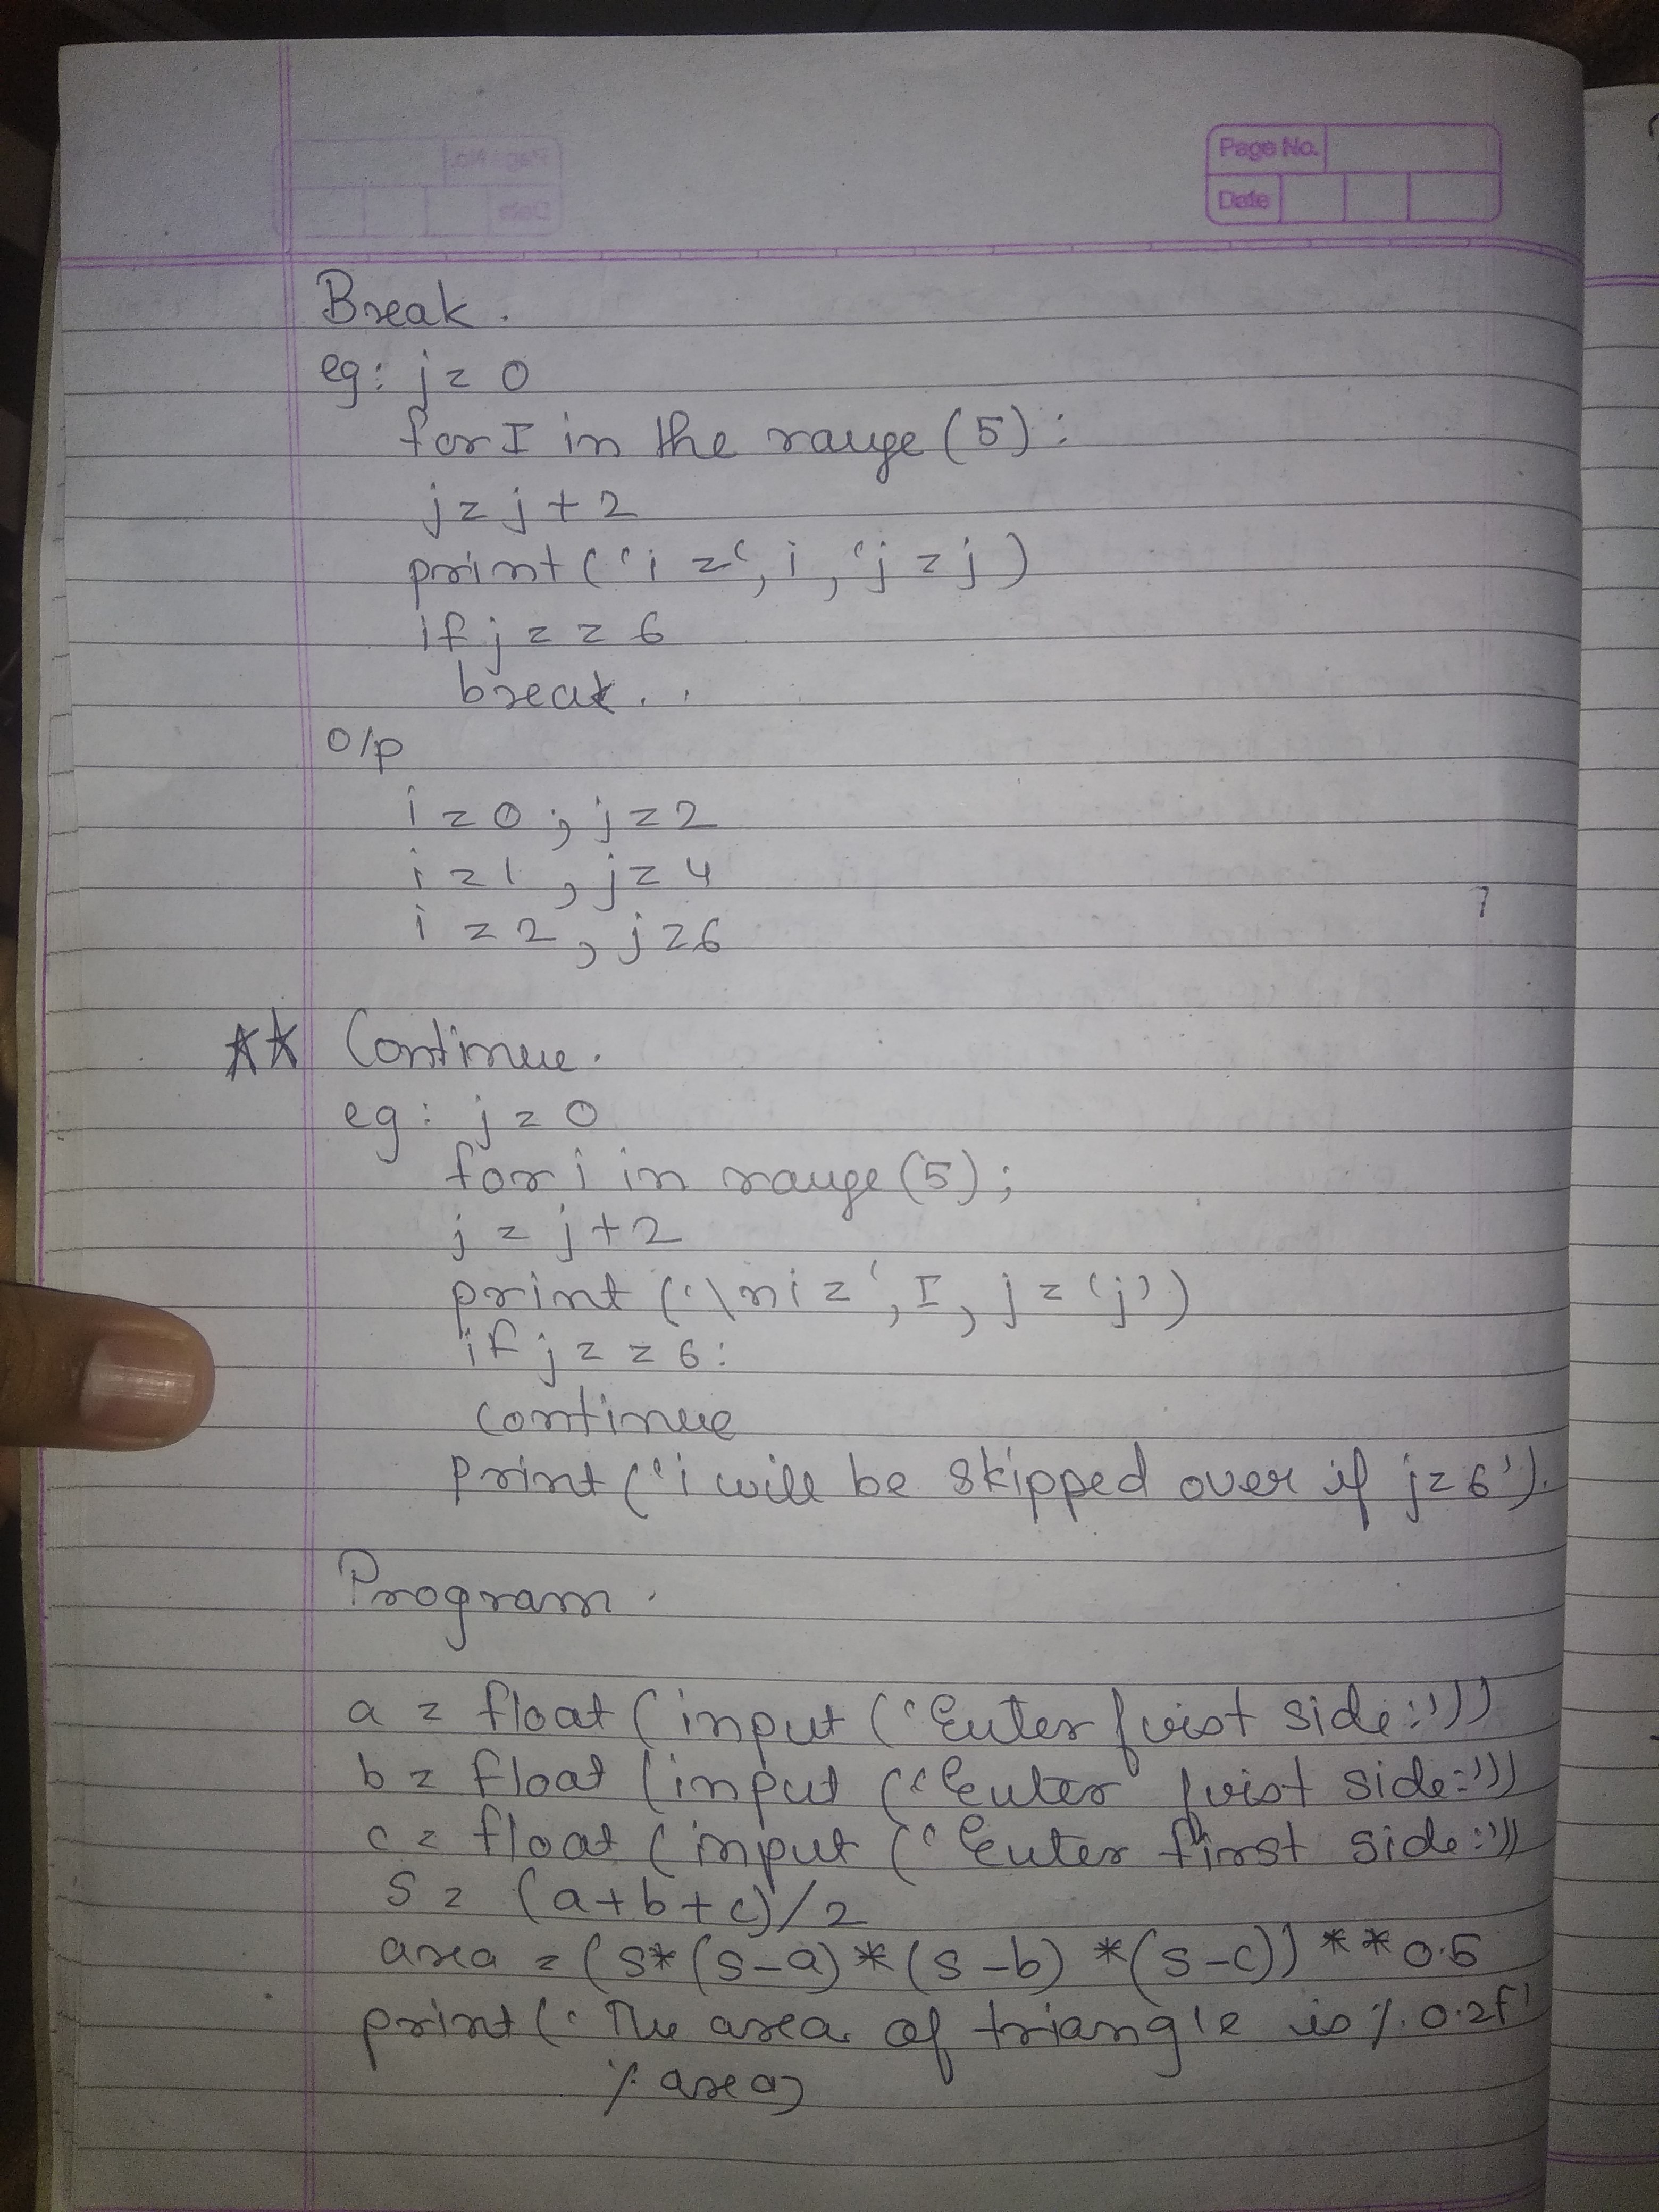 Page No.
Date
Break.
eg: j = 0
for I in the range (5):
j = j + 2
print (‘i =‘, i, ‘j = j)
if j = = 6
break..
O/p
i = 0 ; j = 2
i = 1 , j = 4
i = 2 , j = 6
** Continue.
eg: j = 0
for i in range (5);
j = j + 2
print (‘\n i = ‘, I, j = ‘j’)
if j = = 6:
continue
print (‘i will be skipped over if j = 6’).
Program.
a = float (input (‘Enter first side:’))
b = float (input (‘Enter first side:’))
c = float (input (‘Enter first side:’))
S = (a+b+c)/2
area = (s*(s-a)*(s-b)*(s-c))**0.5
print (‘The area of triangle is %.0.2f’
% area)